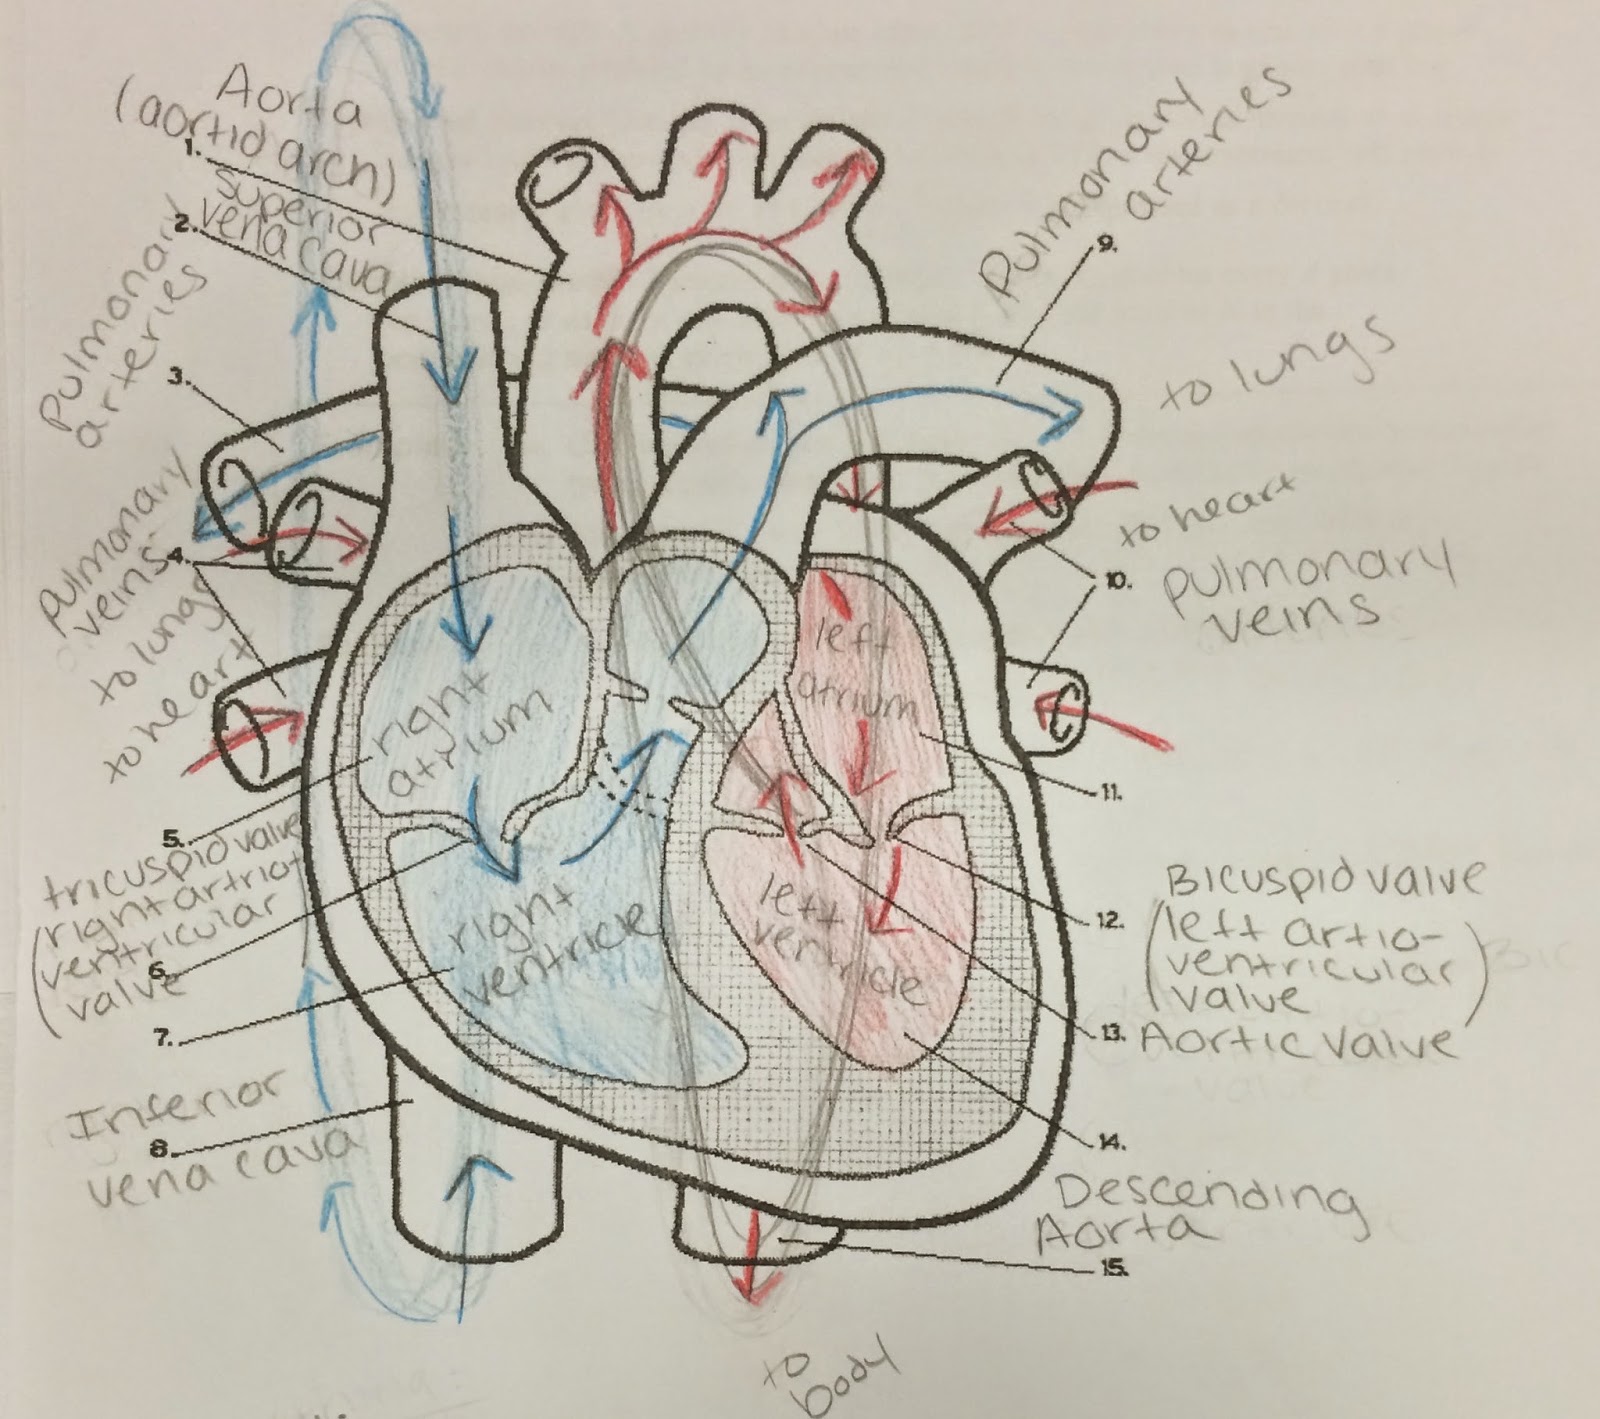 Aorta
(aortid arch)
1.
superior
2. vena cava
Pulmonary
arteries
3.
pulmonary
veins
4.
to lungs
to heart
right
atrium
5.
tricuspid valve
(right artrio
ventricular
6.
valve
right
ventricle
7.
Inferior
8.
vena cava
Pulmonary
arteries
9.
to lungs
to heart
10. pulmonary
veins
left
atrium
11.
Bicuspid valve
12. (left artio-
ventricular
valve)
13. Aortic valve
left
ventricle
14.
Descending
Aorta
15.
to
body